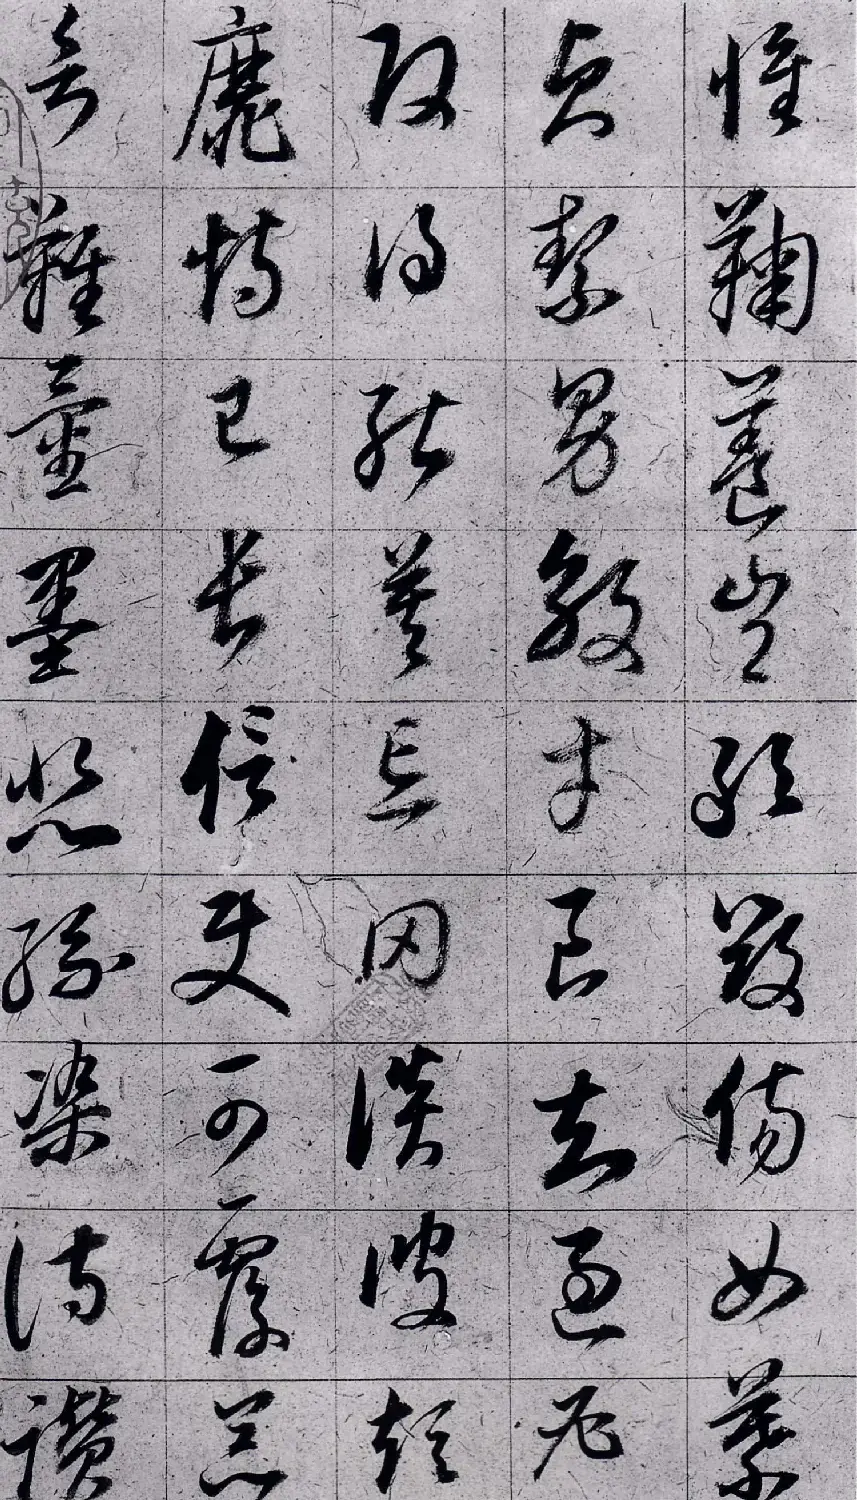 惟鞠養豈敢毀傷女慕
貞絜男效才良知過必
改得能莫忘罔談彼短
靡恃己長信使可覆器
欲難量墨悲絲染詩讚